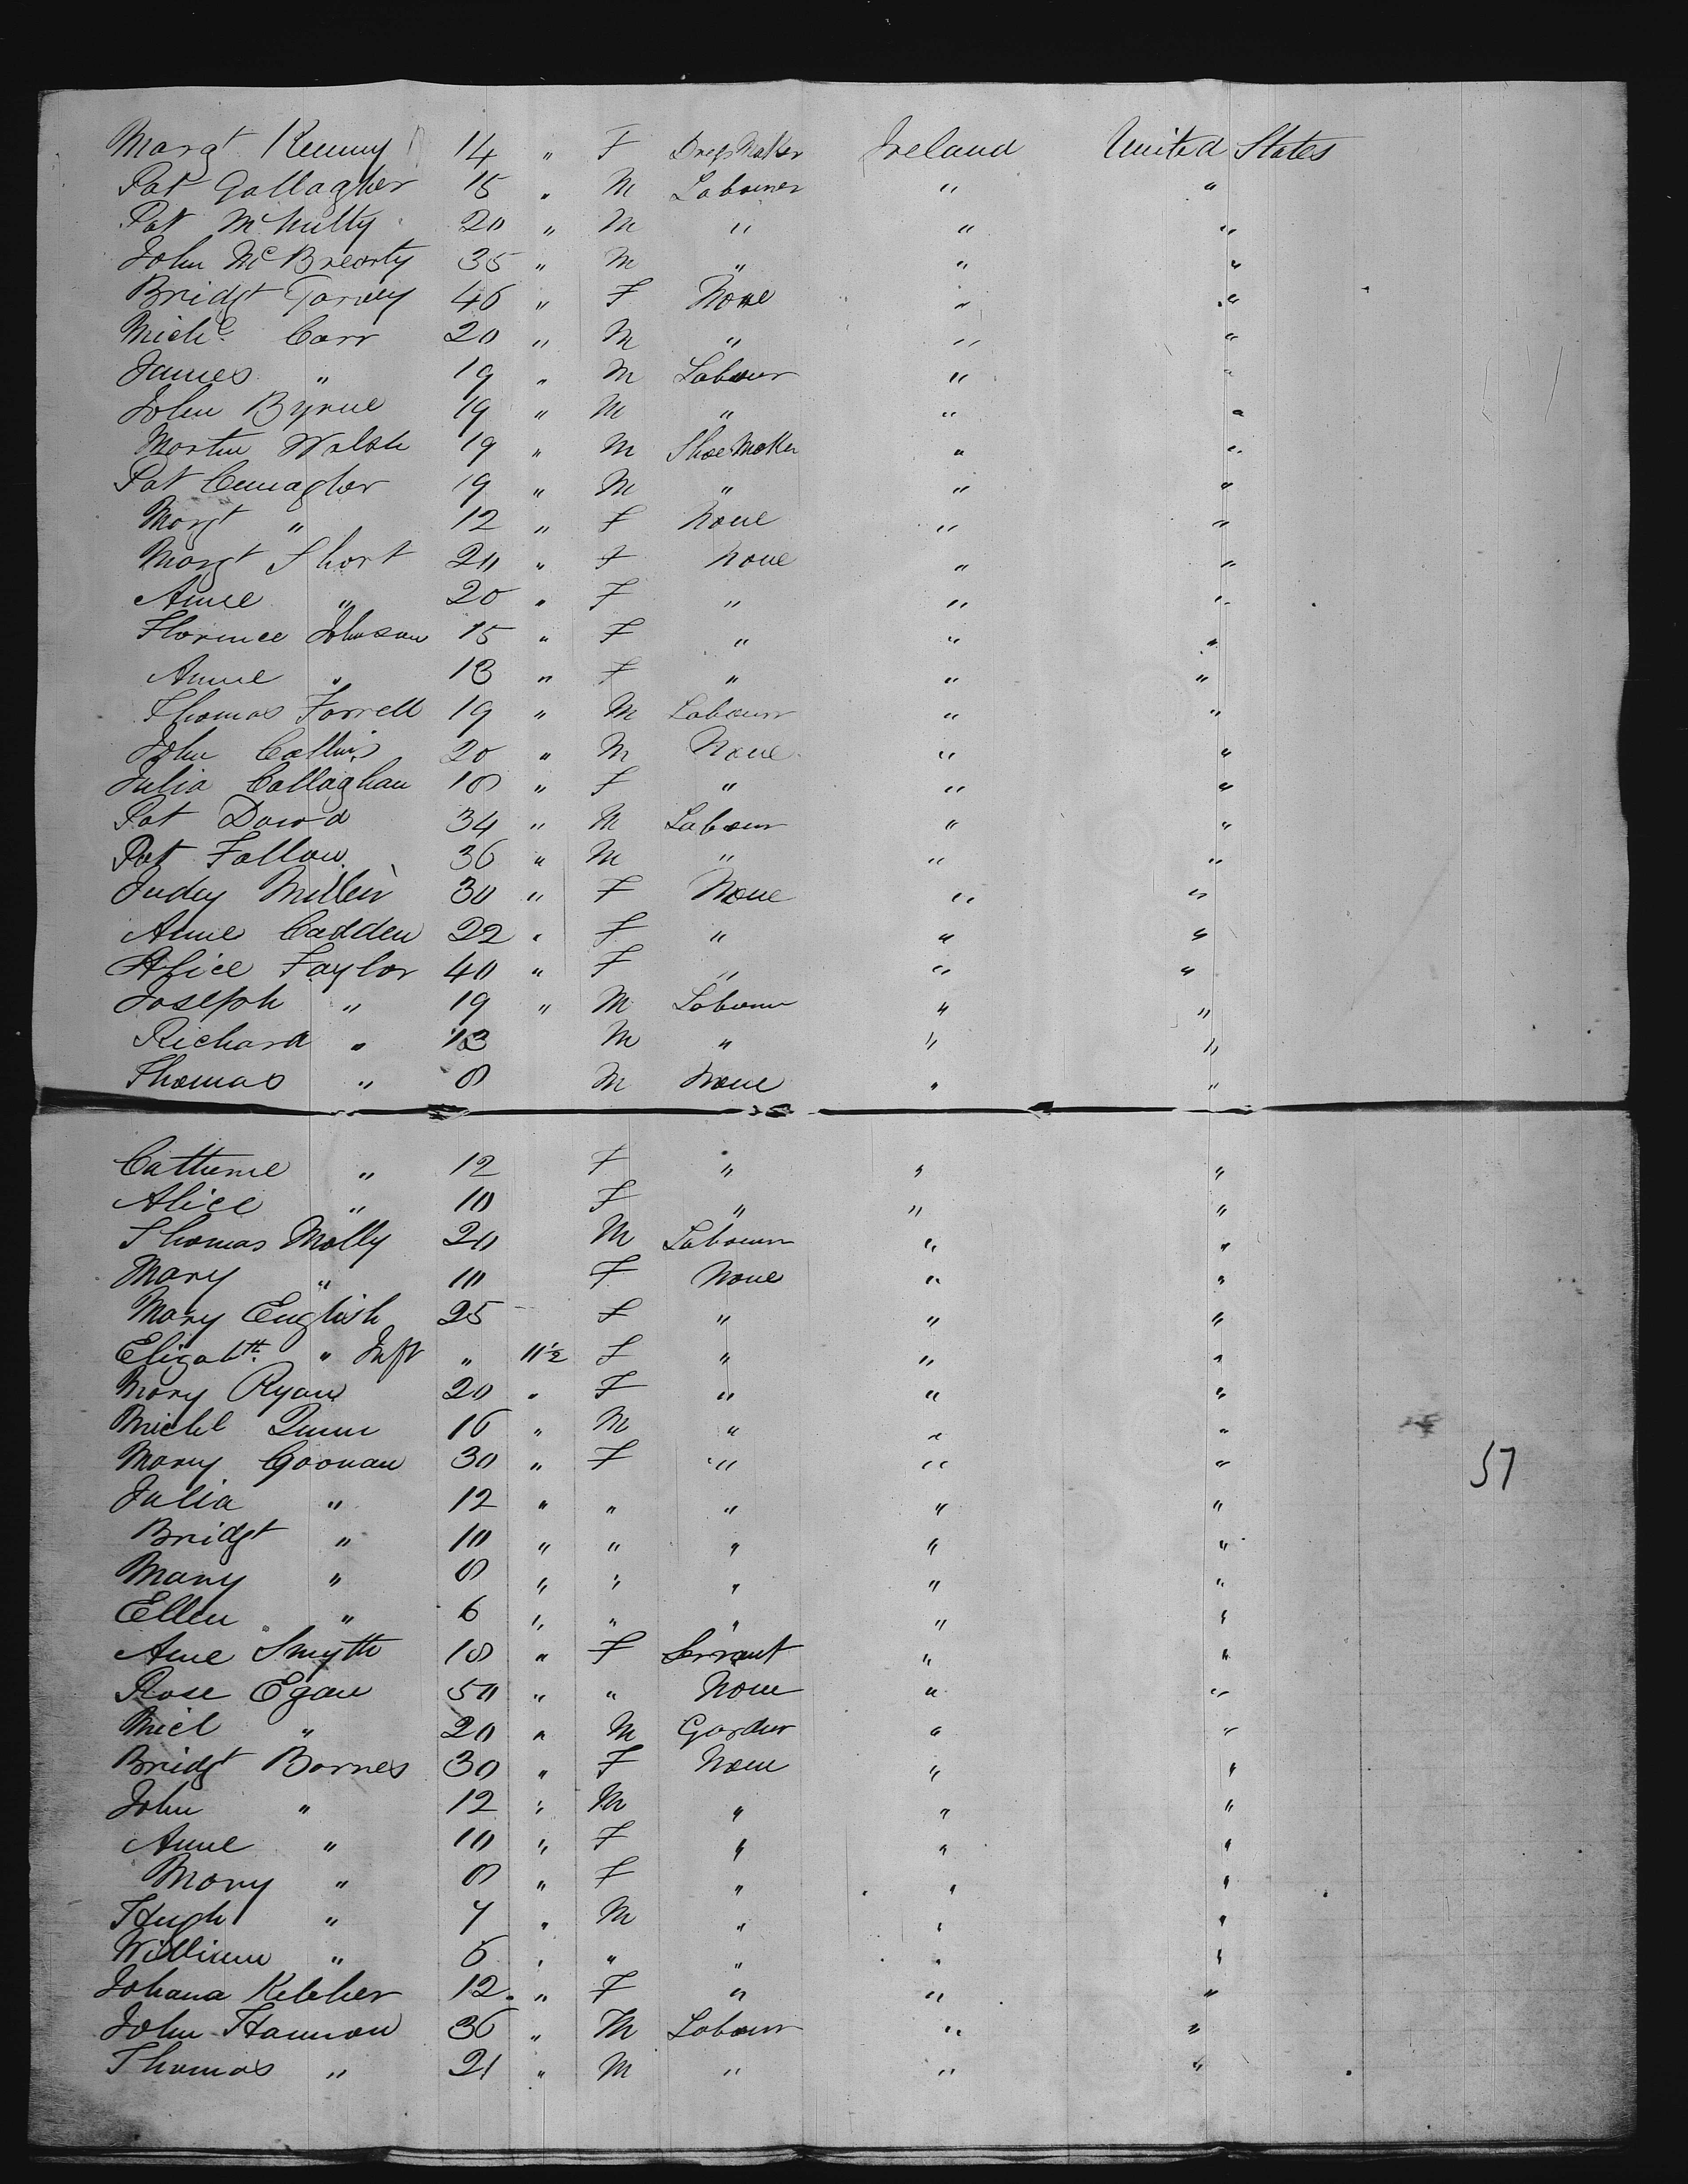 Margt Kenny 14 " F Dress Maker Ireland United States
Pat Gallagher 15 " M Labourer " "
Pat McNulty 20 " M " " "
John McBrearty 35 " M " " "
Bridgt Garvey 46 " F None " "
Michl Carr 20 " M " " "
James " 19 " M Labour " "
John Byrne 19 " M " " "
Martin Walsh 19 " M Shoe Maker " "
Pat 19 " M " " "
Margt " 12 " F None " "
Margt Short 20 " F None " "
Anne " 20 " F " " "
Florence Johnson 15 " F " " "
Anne " 13 " F " " "
Thomas Farrell 19 " M Labour " "
John Collins 20 " M None " "
Julia Callaghan 18 " F " " "
Pat Dowd 34 " M Labour " "
Pat Fallon 36 " M " " "
Judy Millen 30 " F None " "
Anne Cadden 22 " F " " "
Alice Taylor 40 " F " " "
Joseph " 19 " M Labour " "
Richard " 13 M " " "
Thomas " 8 M None " "
Catherine " 12 F " " "
Alice " 10 F " " "
Thomas Molly 20 M Labour " "
Mary " 10 F None " "
Mary English 25 F " " "
Elizabth " Inft " 11½ F " " "
Mary Ryan 20 " F " " "
Michl Quinn 16 " M " " "
Mary Goonan 30 " F " " "
57
Julia " 12 " " " " "
Bridgt " 10 " " " " "
Mary " 8 " " " " "
Ellen " 6 " " " " "
Anne Smyth 18 " F Servant " "
Rose Egan 50 " " None " "
Micl " 20 " M Gardnr " "
Bridgt Barnes 30 " F None " "
John " 12 " M " " "
Anne " 10 " F " " "
Mary " 8 " F " " "
Hugh " 7 " M " " "
William " 5 " " " " "
Johana Keleher 12 " F " " "
John Hannon 36 " M Labour " "
Thomas " 21 " M " " "